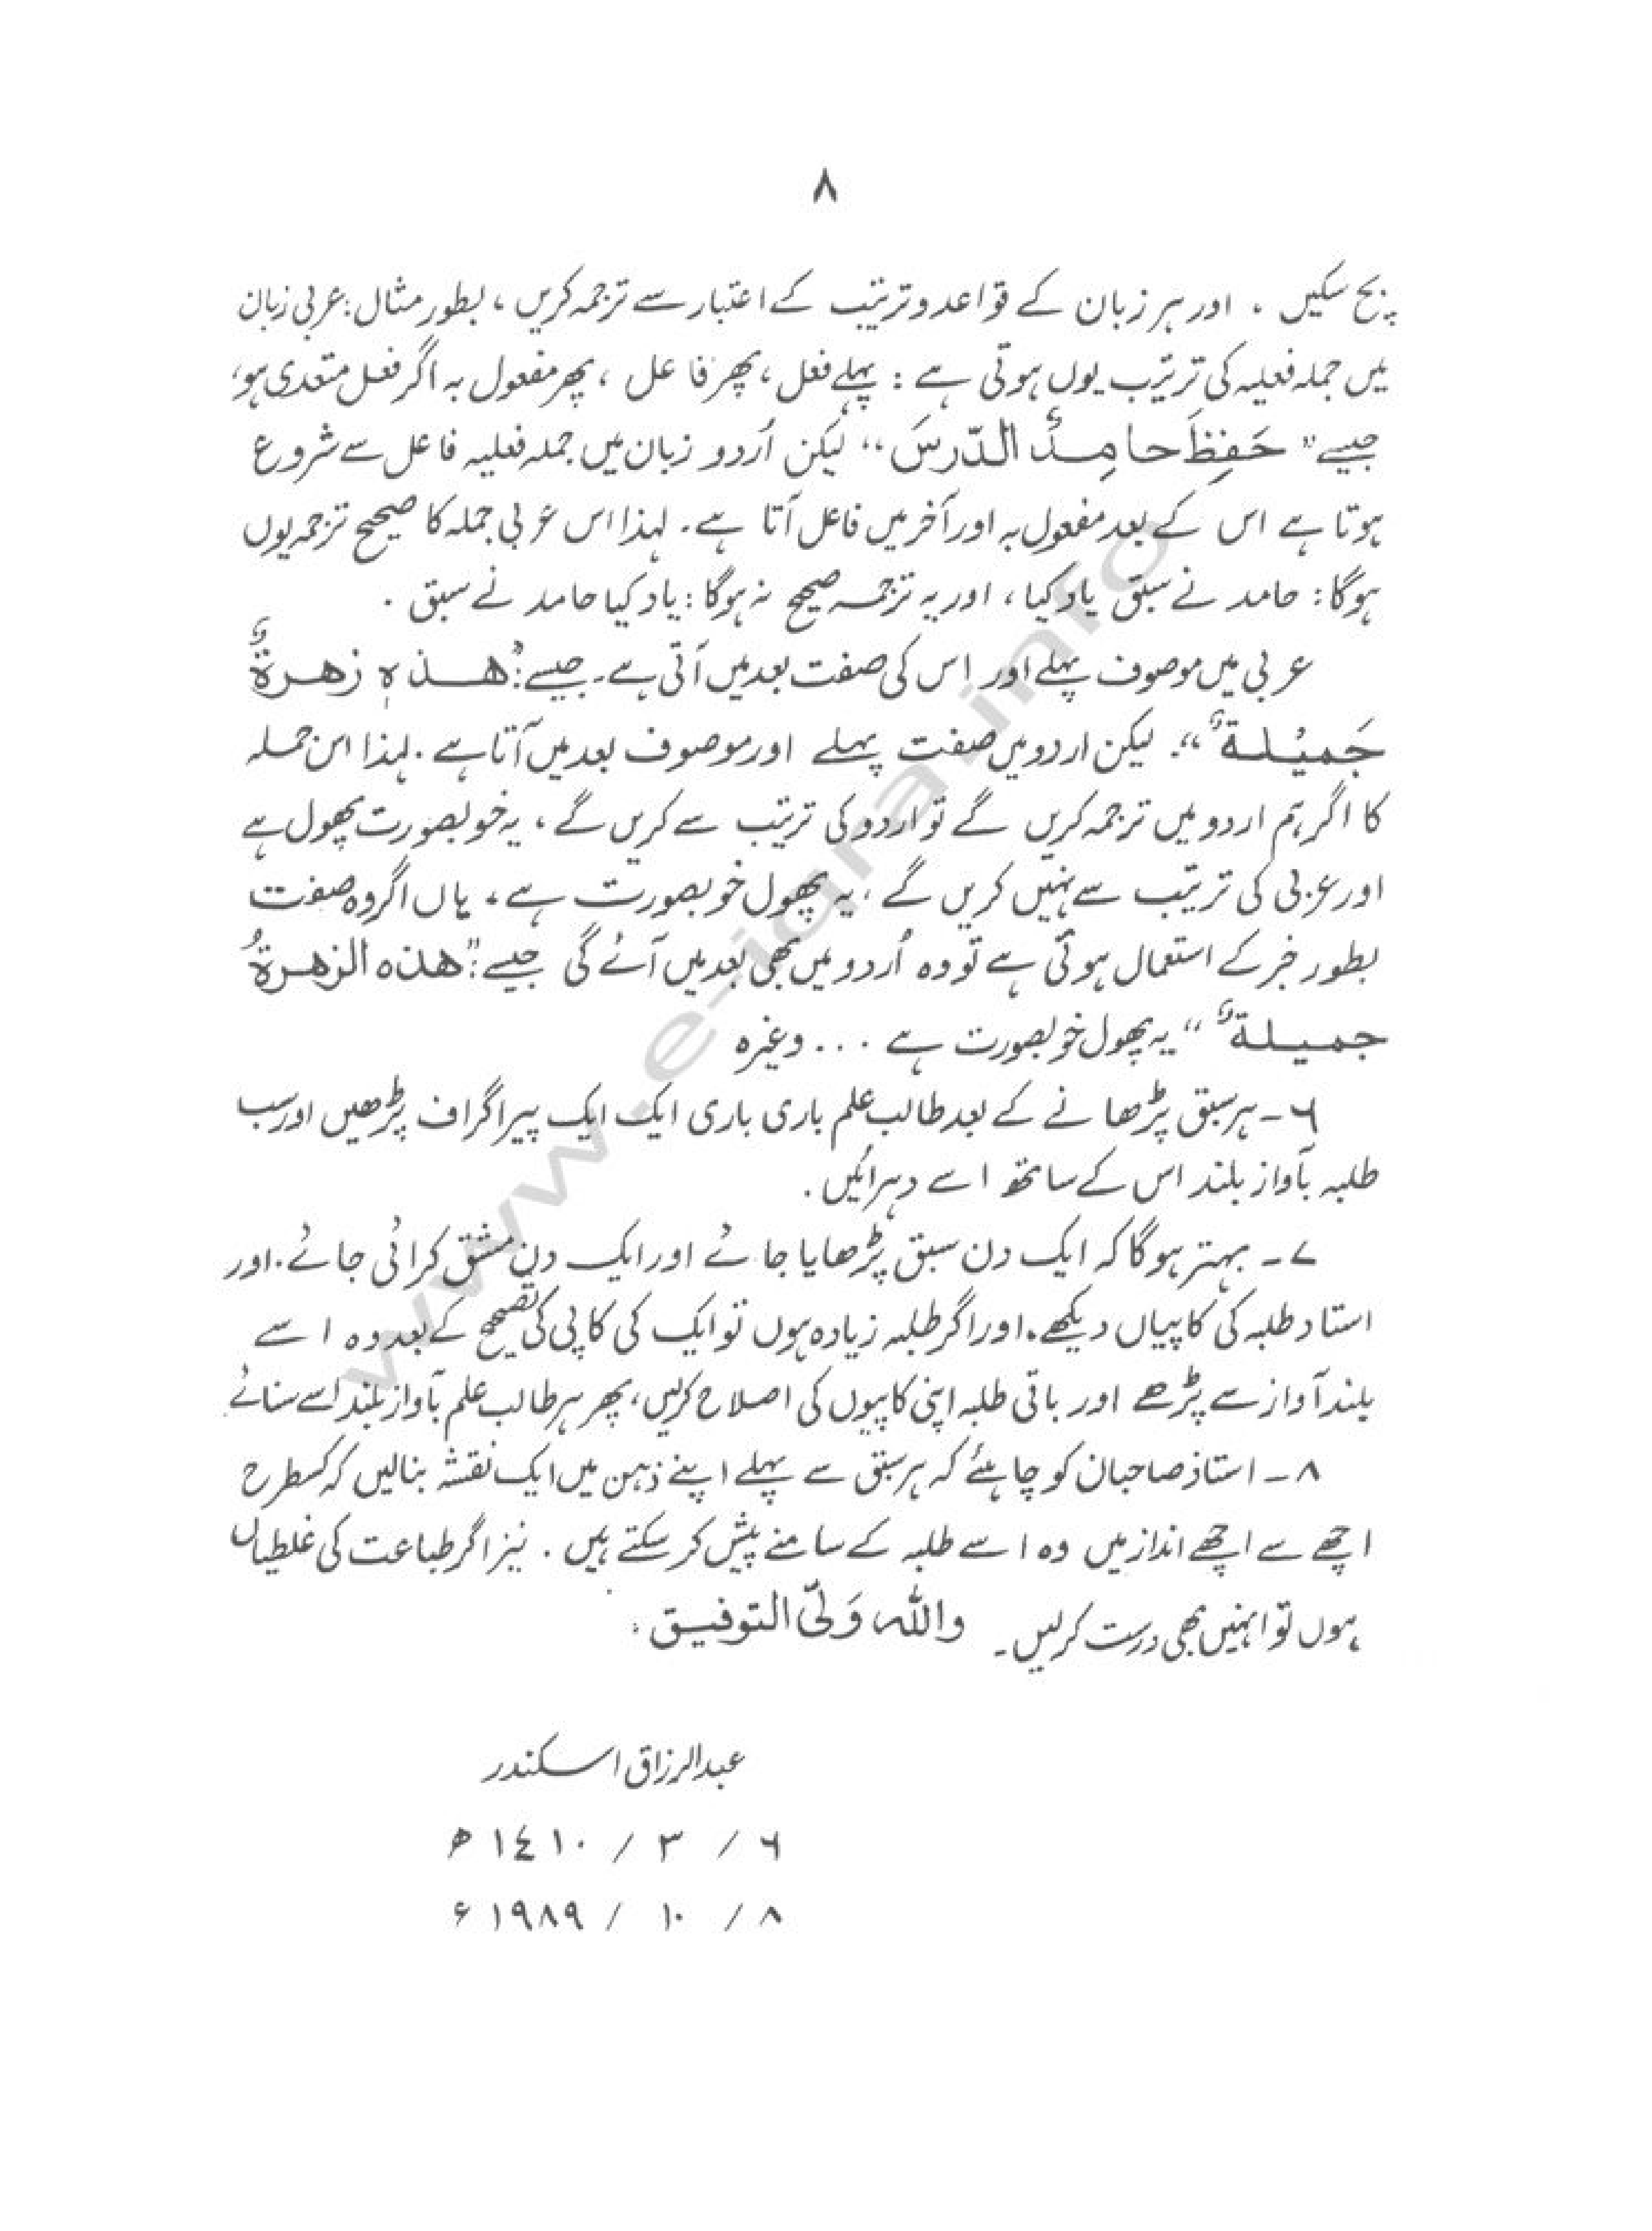 ٨
بچ سکیں ۔ اور ہر زبان کے قواعد و ترتیب کے اعتبار سے ترجمہ کریں ، بطور مثال : عربی زبان
میں جملہ فعلیہ کی ترتیب یوں ہوتی ہے : پہلے فعل ، پھر فاعل ، پھر مفعول بہ اگر فعل متعدی ہو ،
جیسے " حَفِظَ حامِدٌ الدّرسَ " لیکن اُردو زبان میں جملہ فعلیہ فاعل سے شروع
ہوتا ہے اس کے بعد مفعول بہ اور آخر میں فاعل آتا ہے ۔ لہذا اس عربی جملہ کا صحیح ترجمہ یوں
ہوگا : حامد نے سبق یاد کیا ، اور یہ ترجمہ صحیح نہ ہوگا : یاد کیا حامد نے سبق ۔
عربی میں موصوف پہلے اور اس کی صفت بعد میں آتی ہے ۔ جیسے : " هـذهٖ زهـرةٌ
جَميْلـةٌ " ۔ لیکن اردو میں صفت پہلے اور موصوف بعد میں آتا ہے ۔ لہذا اس جملہ
کا اگر ہم اردو میں ترجمہ کریں گے تو اردو کی ترتیب سے کریں گے ، یہ خوبصورت پھول ہے
اور عربی کی ترتیب سے نہیں کریں گے ، یہ پھول خوبصورت ہے ، ہاں اگر وہ صفت
بطور خبر کے استعمال ہوتی ہے تو وہ اُردو میں بھی بعد میں آئے گی جیسے : " هذه الزهرةُ
جميـلـةٌ " یہ پھول خوبصورت ہے . . . وغیرہ
٦ ـ ہر سبق پڑھانے کے بعد طالب علم باری باری ایک ایک پیراگراف پڑھیں اور سب
طلبہ بآواز بلند اس کے ساتھ اسے دہرائیں ۔
٧ ـ بہتر ہوگا کہ ایک دن سبق پڑھایا جائے اور ایک دن مشق کرائی جائے ۔ اور
استاد طلبہ کی کاپیاں دیکھے ۔ اور اگر طلبہ زیادہ ہوں تو ایک کی کاپی کی تصحیح کے بعد وہ اسے
بلند آواز سے پڑھے اور باقی طلبہ اپنی کاپیوں کی اصلاح کرلیں ، پھر ہر طالب علم بآواز بلند اسے سنائے
٨ ـ استاذ صاحبان کو چاہئے کہ ہر سبق سے پہلے اپنے ذہن میں ایک نقشہ بنالیں کہ کسطرح
اچھے سے اچھے انداز میں وہ اسے طلبہ کے سامنے پیش کر سکتے ہیں ۔ نیز اگر طباعت کی غلطیاں
ہوں تو انہیں بھی درست کرلیں ۔ واللہ وَلیّ التوفیـق :
عبدالرزاق اسـکندر
٦ / ٣ / ١٤١٠ ھ
٨ / ١٠ / ١٩٨٩ ء
www.e-iqra.info